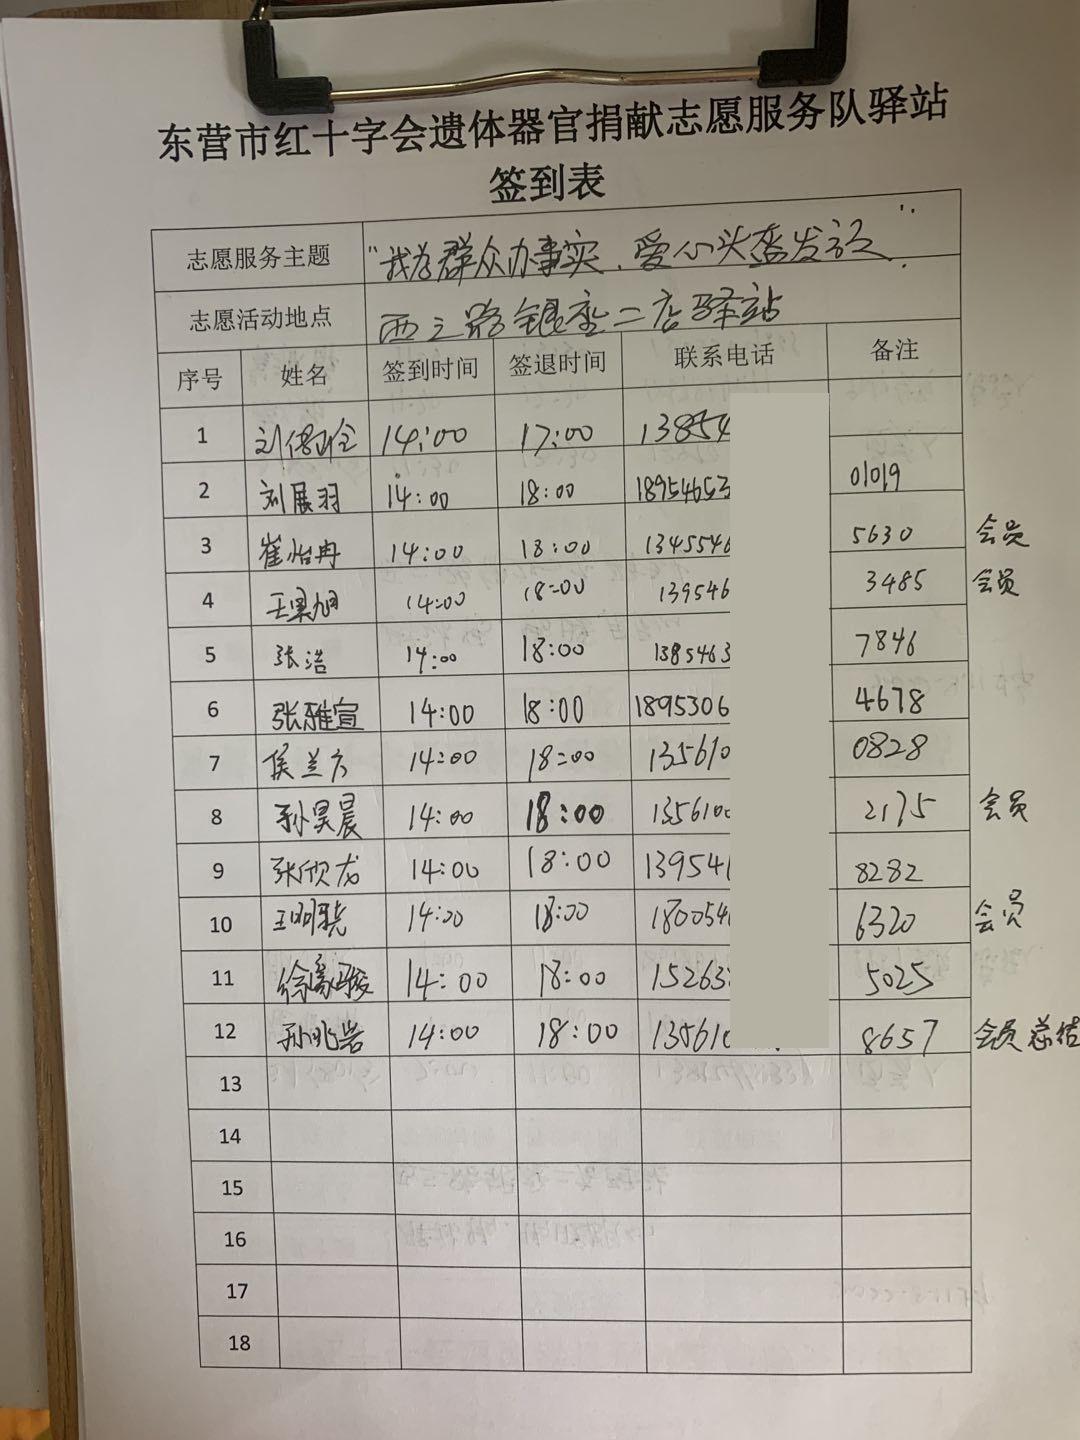 东营市红十字会遗体器官捐献志愿服务队驿站
签到表
志愿服务主题 "我为群众办事实、爱心头盔发放"
志愿活动地点 西三路银座二店驿站
序号 姓名 签到时间 签退时间 联系电话 备注
1 14:00 17:00 13854
2 刘展羽 14:00 18:00 18954653 01019
3 崔怡冉 14:00 18:00 1345546 5630 会员
4 王昊旭 14:00 18:00 139546 3485 会员
5 张浩 14:00 18:00 1385463 7846
6 张雅宣 14:00 18:00 1895306 4678
7 侯兰方 14:00 18:00 135610 0828
8 孙昊晨 14:00 18:00 1356100 2175 会员
9 张欣龙 14:00 18:00 139541 8282
10 王明骁 14:00 18:00 1800546 6320 会员
11 徐豪骏 14:00 18:00 15263 5025
12 孙兆岩 14:00 18:00 135610 8657 会员 总结
13
14
15
16
17
18